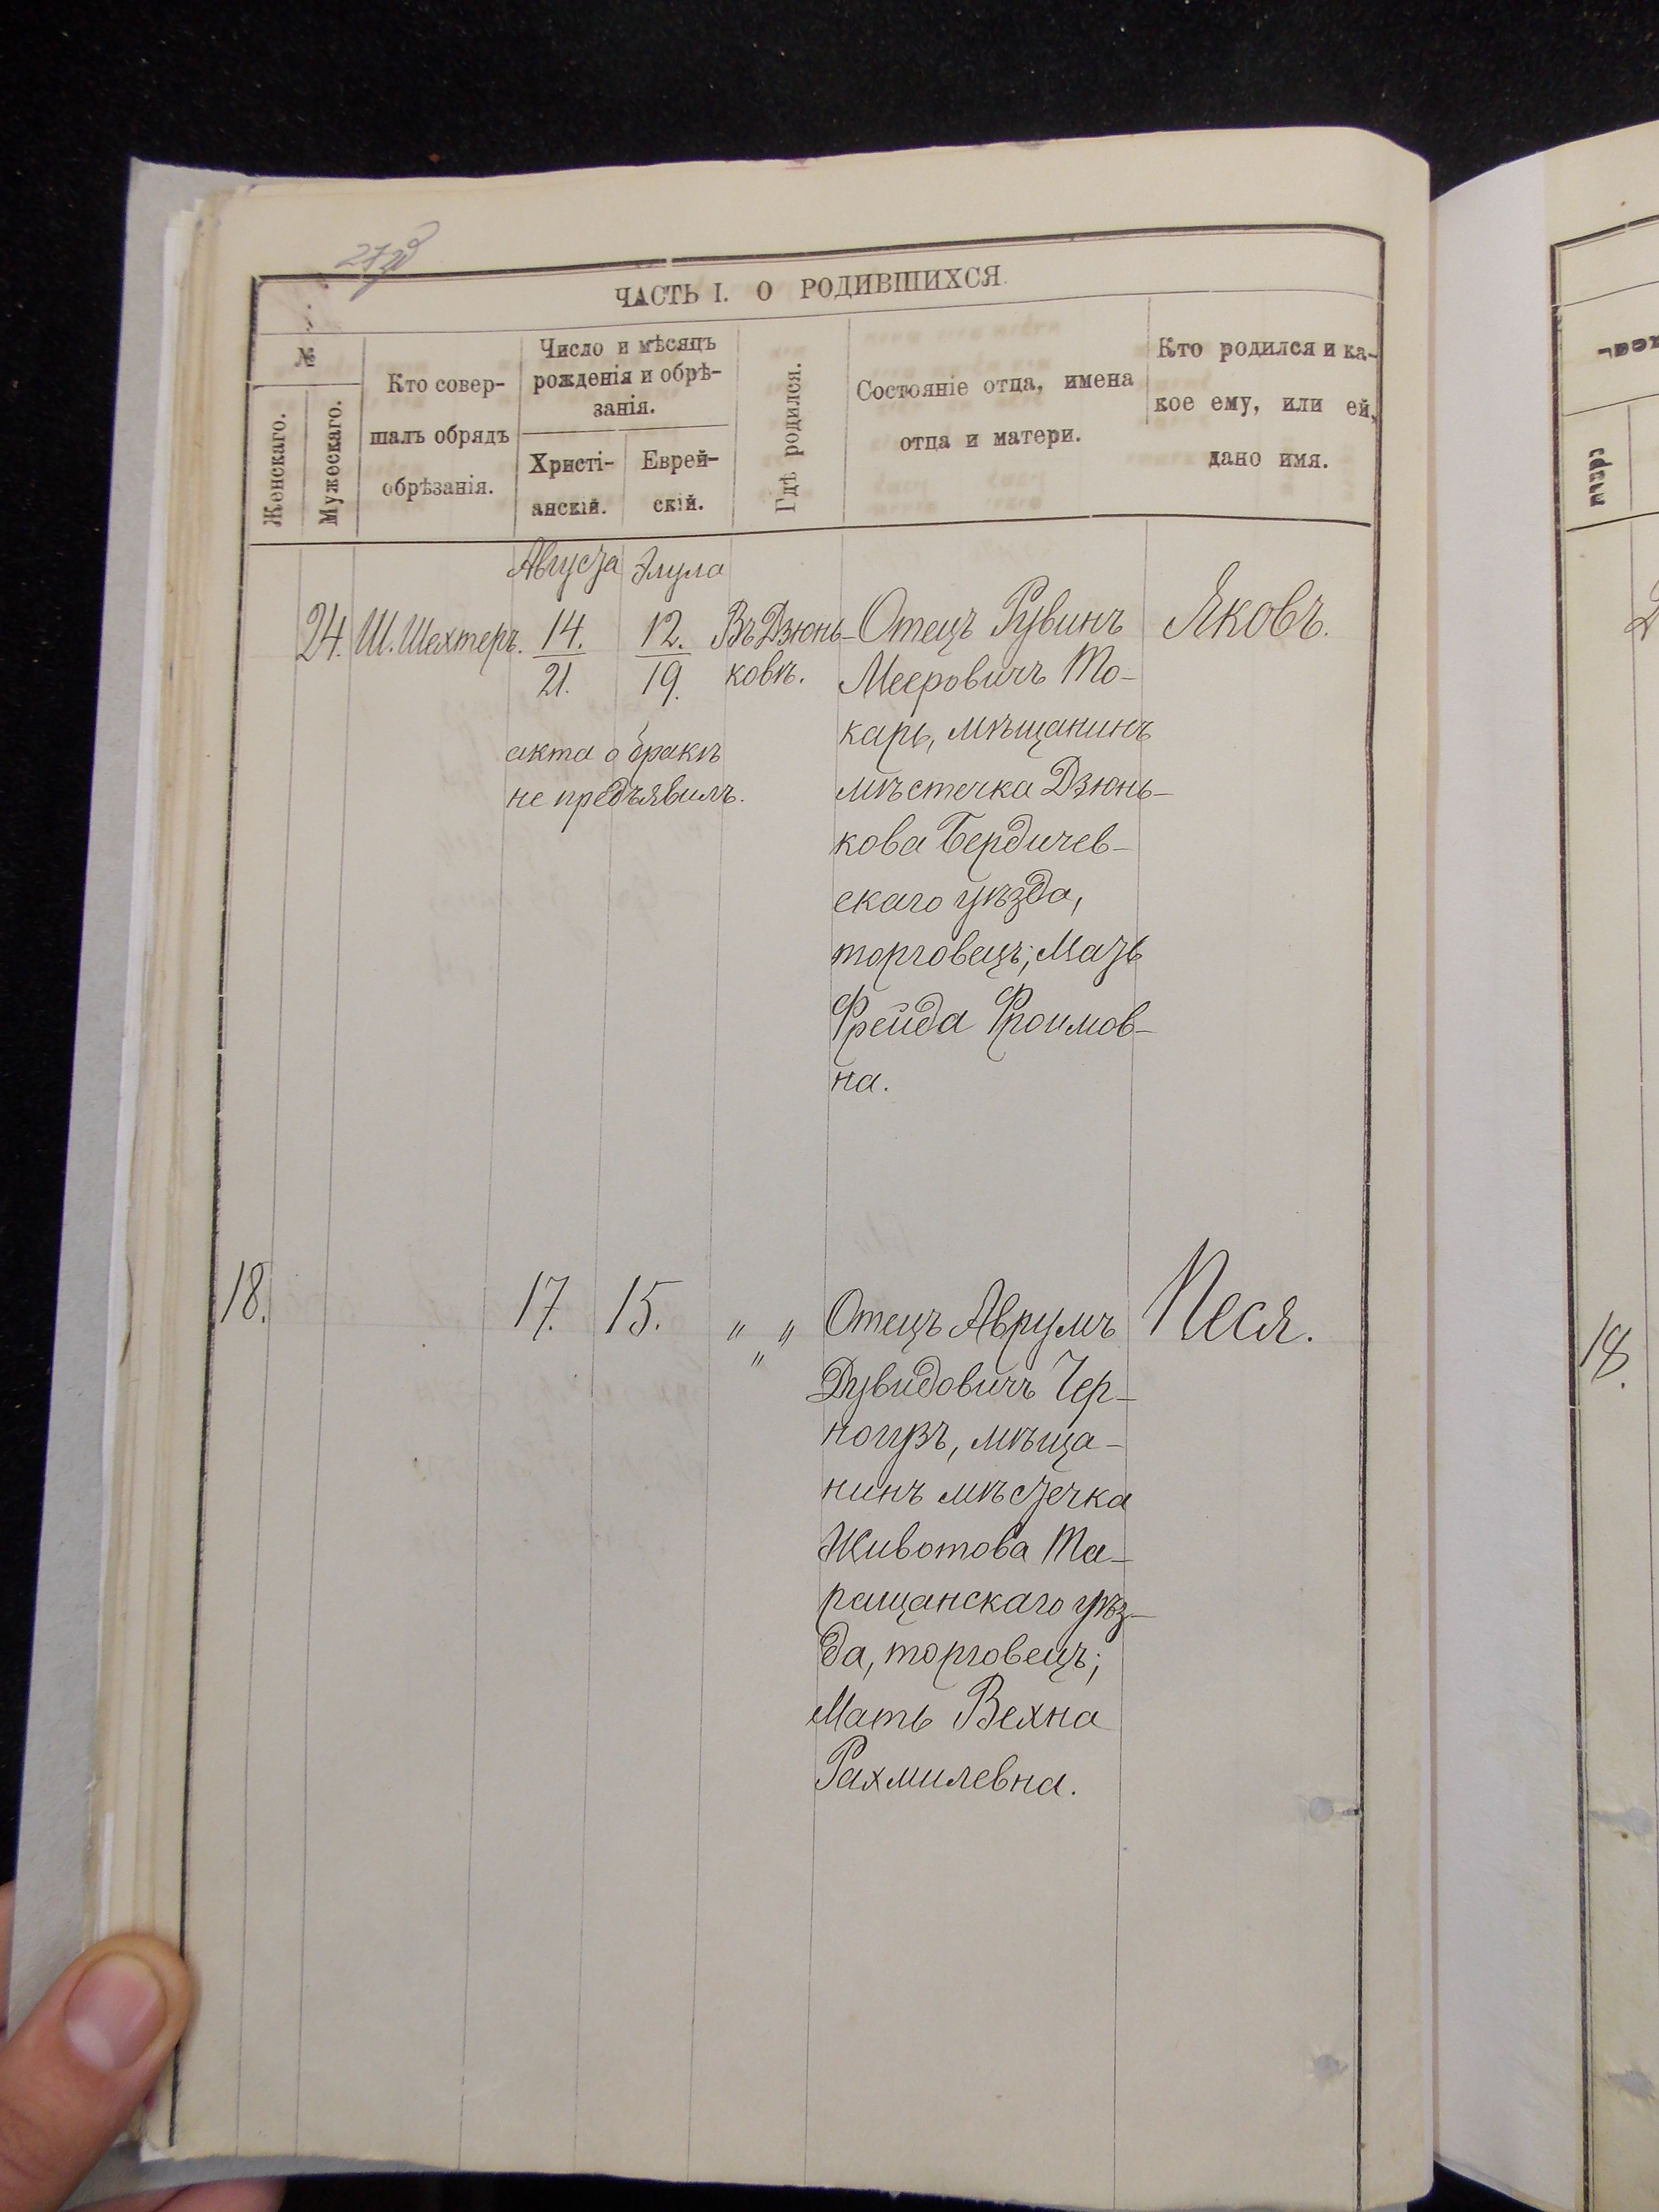 ЧАСТЬ I. О РОДИВШИХСЯ.
№
Женскаго.
Мужескаго.
Кто совер-
шалъ обрядъ
обрѣзанія.
Число и мѣсяцъ
рожденія и обрѣ-
занія.
Христі-
анскій.
Еврей-
скій.
Гдѣ родился.
Состояніе отца, имена
отца и матери.
Кто родился и ка-
кое ему, или ей,
дано имя.
Августа Элула
24. Ш. Шехтеръ. 14. 12. Въ Дзюнь-
21. 19. ковѣ.
акта о бракѣ
не предъявилъ.
Отецъ Рувинъ
Мееровичъ То-
карь, мѣщанинъ
мѣстечка Дзюнь-
кова Бердичев-
скаго уѣзда,
торговецъ; Мать
Фрейда Фроимов-
на.
Яковъ.
18. 17. 15. " "
"
Отецъ Аврумъ
Дувидовичъ Чер-
ногузъ, мѣща-
нинъ мѣстечка
Животова Та-
ращанскаго уѣз-
да, торговецъ;
Мать Вехна
Рахмилевна.
Песя.
18.